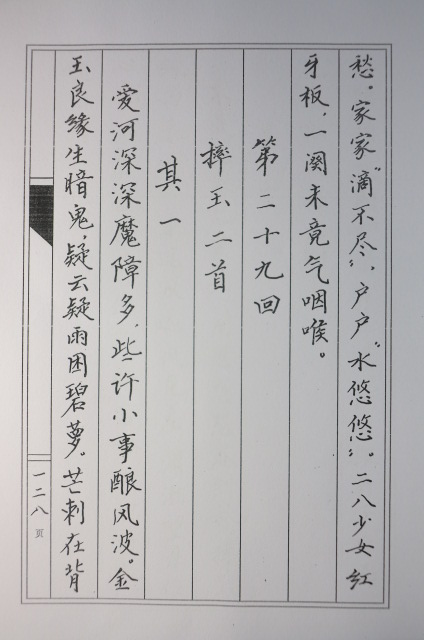 愁。家家“滴不尽”，户户“水悠悠”。二八少女红
牙板，一阕未竟气咽喉。
第二十九回
摔玉二首
其一
爱河深深魔障多，些许小事酿风波。金
玉良缘生暗鬼，疑云疑雨困碧萝。芒刺在背
一二八页